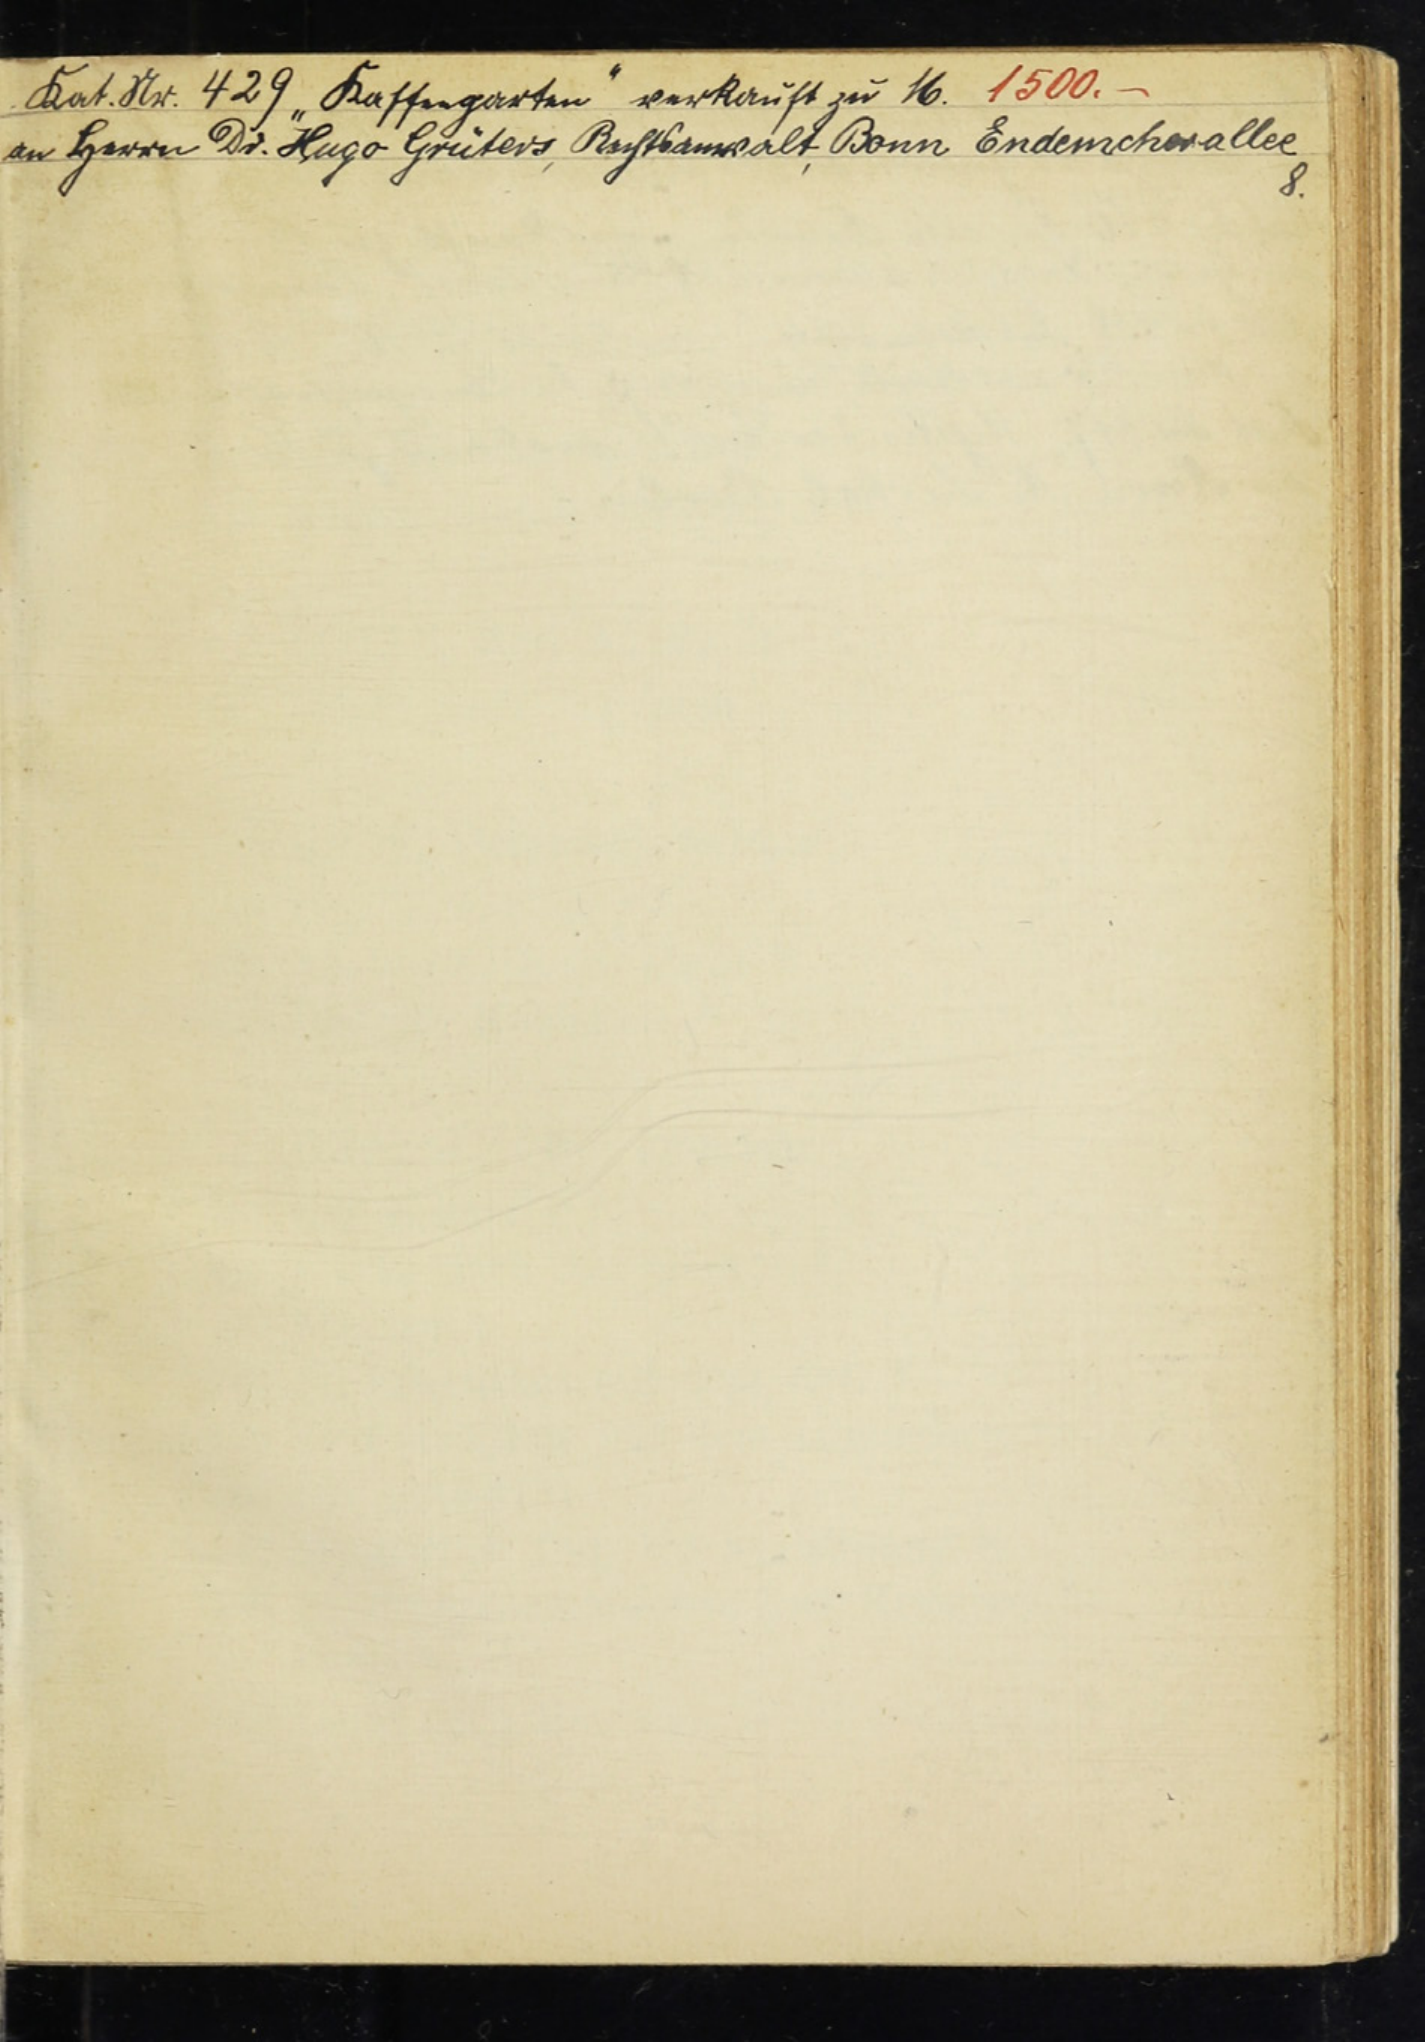 Kat. Nr. 429 „Kaffeegarten“ verkauft zu M. 1500.—
an Herrn Dr. Hugo Grüters, Rechtsanwalt, Bonn Endenicherallee
8.